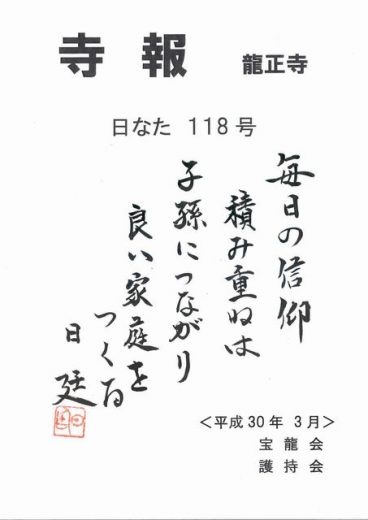 寺報 龍正寺
日なた 118号
毎日の信仰
積み重ねは
子孫につながり
良い家庭を
つくる
日廷
<平成30年 3月>
宝龍会
護持会